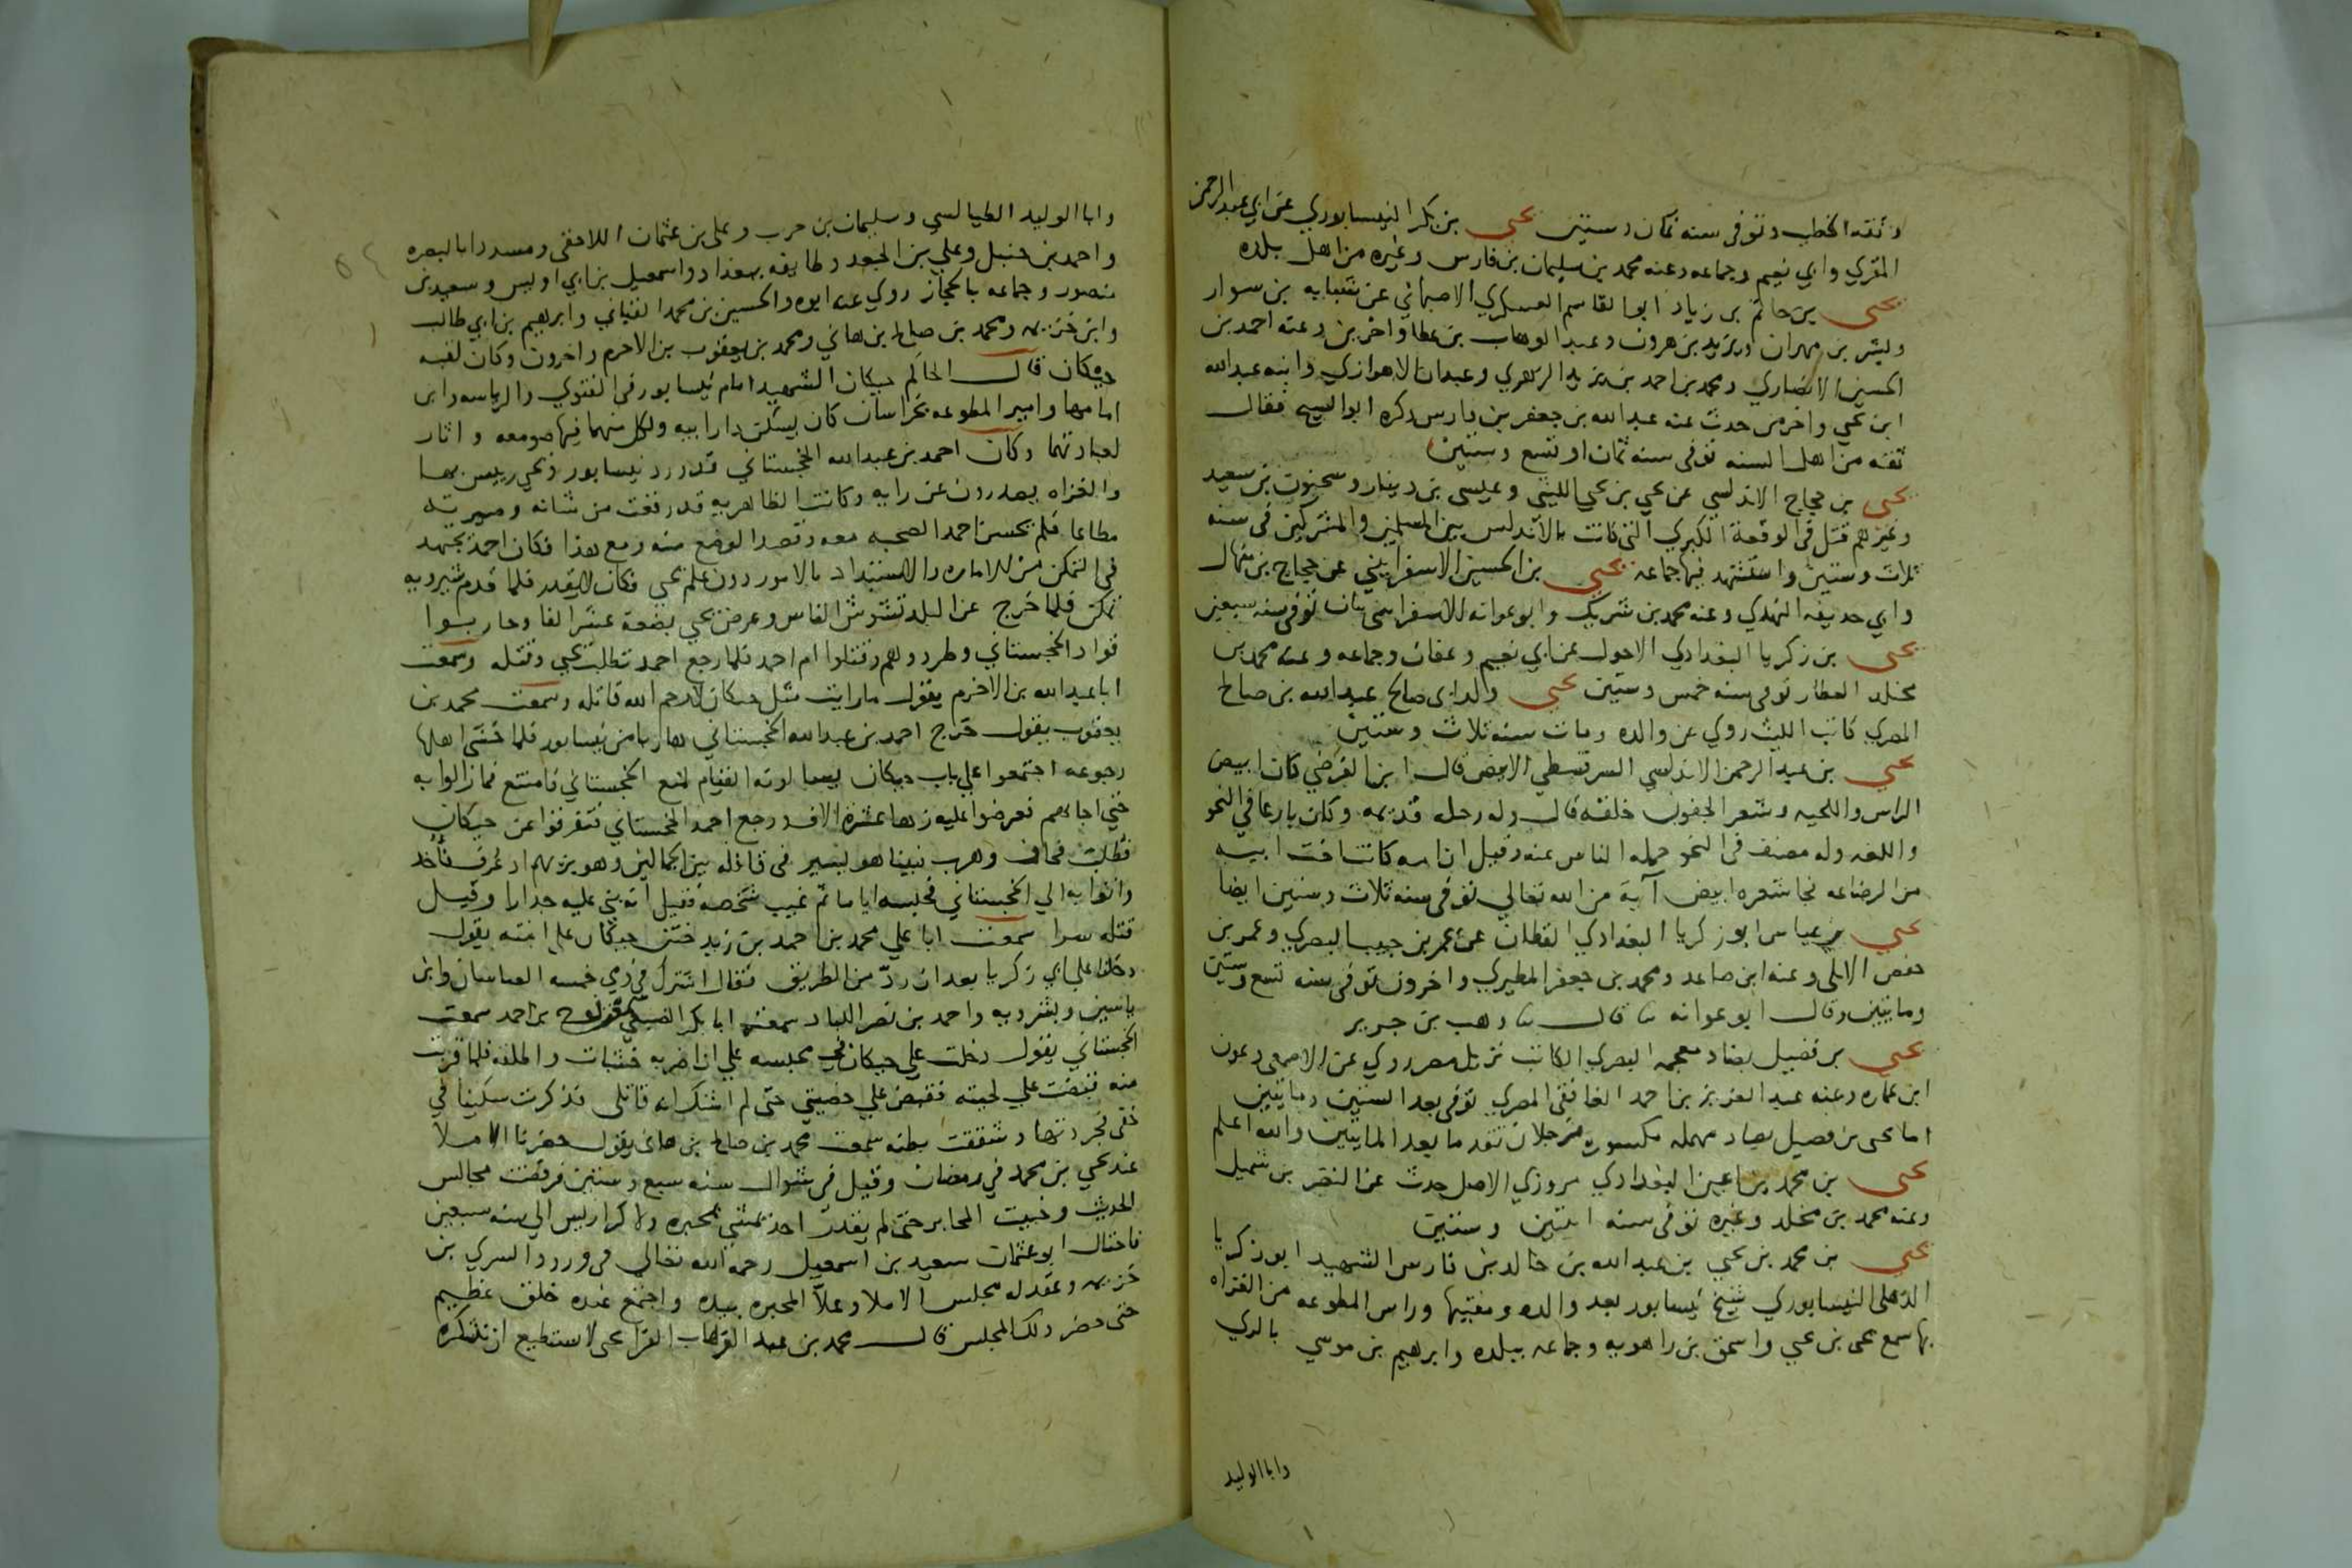 وثقه الخطيب وتوفى سنه ثمان وستين يحيى بن بكر النيسابوري عن ابي عبد الرحمن
المقري وابي نعيم وجماعه وعنه محمد بن سليمان بن فارس وغيره من اهل بلده
يحيى بن حاتم بن زياد ابو القاسم العسكري الاصبهاني عن شبابه بن سوار
وبشر بن مهران ويزيد بن هرون وعبد الوهاب بن عطا واخرين وعنه احمد بن
الحسين الانصاري ومحمد بن احمد بن يزيد الزهري وعبدان الاهوازي وابنه عبد الله
ابن يحيى واخر من حدث عنه عبد الله بن جعفر بن فارس ذكره ابو الشيخ فقال
ثقه من اهل السنه توفى سنه ثمان او تسع وستين
يحيى بن حجاج الاندلسي عن يحيى بن يحيى الليثي وعيسى بن دينار وسحنون بن سعيد
وغيرهم قتل في الوقعة الكبري التي كانت بالاندلس بين المسلمين والمشركين في سنه
ثلاث وستين واستشهد فيها جماعه يحيى بن الحسين الاسفرايني عن حجاج بن منهال
وابي حذيفه النهدي وعنه محمد بن شريك وابو عوانه الاسفرايينيان توفي سنه سبعين
يحيى بن زكريا البغدادي الاحول عن ابي نعيم وعفان وجماعه وعنه محمد بن
مخلد العطار توفى سنه خمس وستين يحيى والد ابى صالح عبد الله بن صالح
المصري كاتب الليث روي عن والده ومات سنه ثلاث وستين
يحيى بن عبد الرحمن الاندلسي السرقسطي الابيض قال ابن الفرضي كان ابيض
الراس واللحيه وشعر الجفون خلقه قال وله رحله قديمه وكان بارعا في النحو
واللغه وله مصنف في النحو حمله الناس عنه وقيل ان امه كانت اخت ابيه
من الرضاعه فجا شعره ابيض آية من الله تعالي توفى سنه ثلاث وستين ايضا
يحيى بن عياس ابو زكريا البغدادي القطان عن عمر بن حبيب البصري وعمر بن
حفص الابلى وعنه ابن صاعد ومحمد بن جعفر المطيري واخرون توفى سنه تسع وستين
ومايتين وقال ابو عوانه ثنا قال ثنا وهب بن جرير
يحيى بن فضيل بضاد معجمه البصري الكاتب نزيل مصر روي عن الاصمعي وعون
ابن عماره وعنه عبد العزيز بن احمد الغافقي المصري توفى بعد الستين ومايتين
اما يحيى بن فصيل بصاد مهمله مكسوره فرجلان تقدما بعد المايتين والله اعلم
يحيى بن محمد بن اعين البغدادي مروزي الاصل حدث عن النضر بن شميل
وعنه محمد بن مخلد وغيره توفى سنه اثنتين وستين
يحيى بن محمد بن يحيى بن عبد الله بن خالد بن فارس الشهيد ابو زكريا
الذهلى النيسابوري شيخ نيسابور بعد والده ومفتيها وراس المطوعه من الغزاه
بها سمع يحيى بن يحيى واسحق بن راهويه وجماعه ببلده وابرهيم بن موسي بالري
وابا الوليد
وابا الوليد الطيالسي وسليمان بن حرب وعلى بن عثمان اللاحقى ومسددا بالبصره
واحمد بن حنبل وعلي بن الجعد وطايفه ببغداد واسمعيل بن ابي اويس وسعيد بن
منصور وجماعه بالحجاز روي عنه ابوه والحسين بن محمد القباني وابرهيم بن ابي طالب
وابن خزيمه ومحمد بن صالح بن هاني ومحمد بن يعقوب بن الاخرم واخرون وكان لقبه
حيكان قال الحاكم حيكان الشهيد امام نيسابور فى الفتوي والرياسه وابن
امامها وامير المطوعه بخراسان كان يسكن دار ابيه ولكل منهما فيها صومعه واثار
لعبادتهما وكان احمد بن عبد الله الخجستاني قد ورد نيسابور ويحيى رييس بها
والغزاه يصدرون عن رايه وكانت الظاهريه قد رفعت من شانه وصيرته
مطاعا فلم يحسن احمد الصحبه معه وقصد الوضع منه ومع هذا فكان احمد يجتهد
في التمكن من الاماره والاستبداد بالامور دون علم يحيى فكان لا يقدر فلما قدم شيرويه
تمكن فلما خرج عن البلد تشوش الناس وعرض يحيى بضعة عشر الفا وحاربوا
قواد الخجستاني وطردوهم وقتلوا ام احمد فلما رجع احمد تطلب يحيى وقتله وسمعت
ابا عبد الله بن الاخرم يقول ما رايت مثل حيكان لا رحم الله قاتله وسمعت محمد بن
يعقوب يقول خرج احمد بن عبد الله الخجستاني هاربا من نيسابور فلما خشى اهلها
رجوعه اجتمعوا علي باب حيكان يسالونه القيام لمنع الخجستاني فامتنع فما زالوا به
حتي اجابهم فعرضوا عليه زها عشرة الاف ورجع احمد الخجستاني فتفرقوا عن حيكان
فطلب فخاف وهرب فبينا هو يسير فى قافله بين الجمالين وهو بزيهم اد عرف فأخذ
واتوا به الي الخجستاني فحبسه اياما ثم غيب شخصه فقيل انه بني عليه جدارا وقيل
قتله سرا سمعت ابا علي محمد بن احمد بن زيد ختن حيكان علي ابنته يقول
دخلنا علي ابي زكريا بعد ان ردّ من الطريق فقال اشترك في دمي خمسه العباسان وابن
ياسين وبشرويه واحمد بن نصر اللباد سمعت ابا بكر الضبعي نوح بن احمد سمعت
الخجستاني يقول دخلت علي حيكان في محبسه علي ان اضربه خشبات واطلقه فلما قربت
منه قبضت علي لحيته فقبض علي خصيتي حتى لم اشك انه قاتلى فذكرت سكينا في
خفى فجردتها وشققت بطنه سمعت محمد بن صالح بن هانى يقول حضرنا الاملا
عند يحيى بن محمد في رمضان وقتل في شوال سنه سبع وستين فرفضت مجالس
الحديث وخبيت المحابر حتى لم يقدر احد يمشي بمحبره ولا كراريس الي سنه سبعين
فاحتال ابو عثمان سعيد بن اسمعيل رحمه الله تعالي فى ورود السري بن
خزيمه وعقد له مجلس الاملا وعلّا المحبره بيده واجتمع عنده خلق عظيم
حتى حضر ذلك المجلس قال محمد بن عبد الوهاب الفرا يحيى لا استطيع ان نشكره